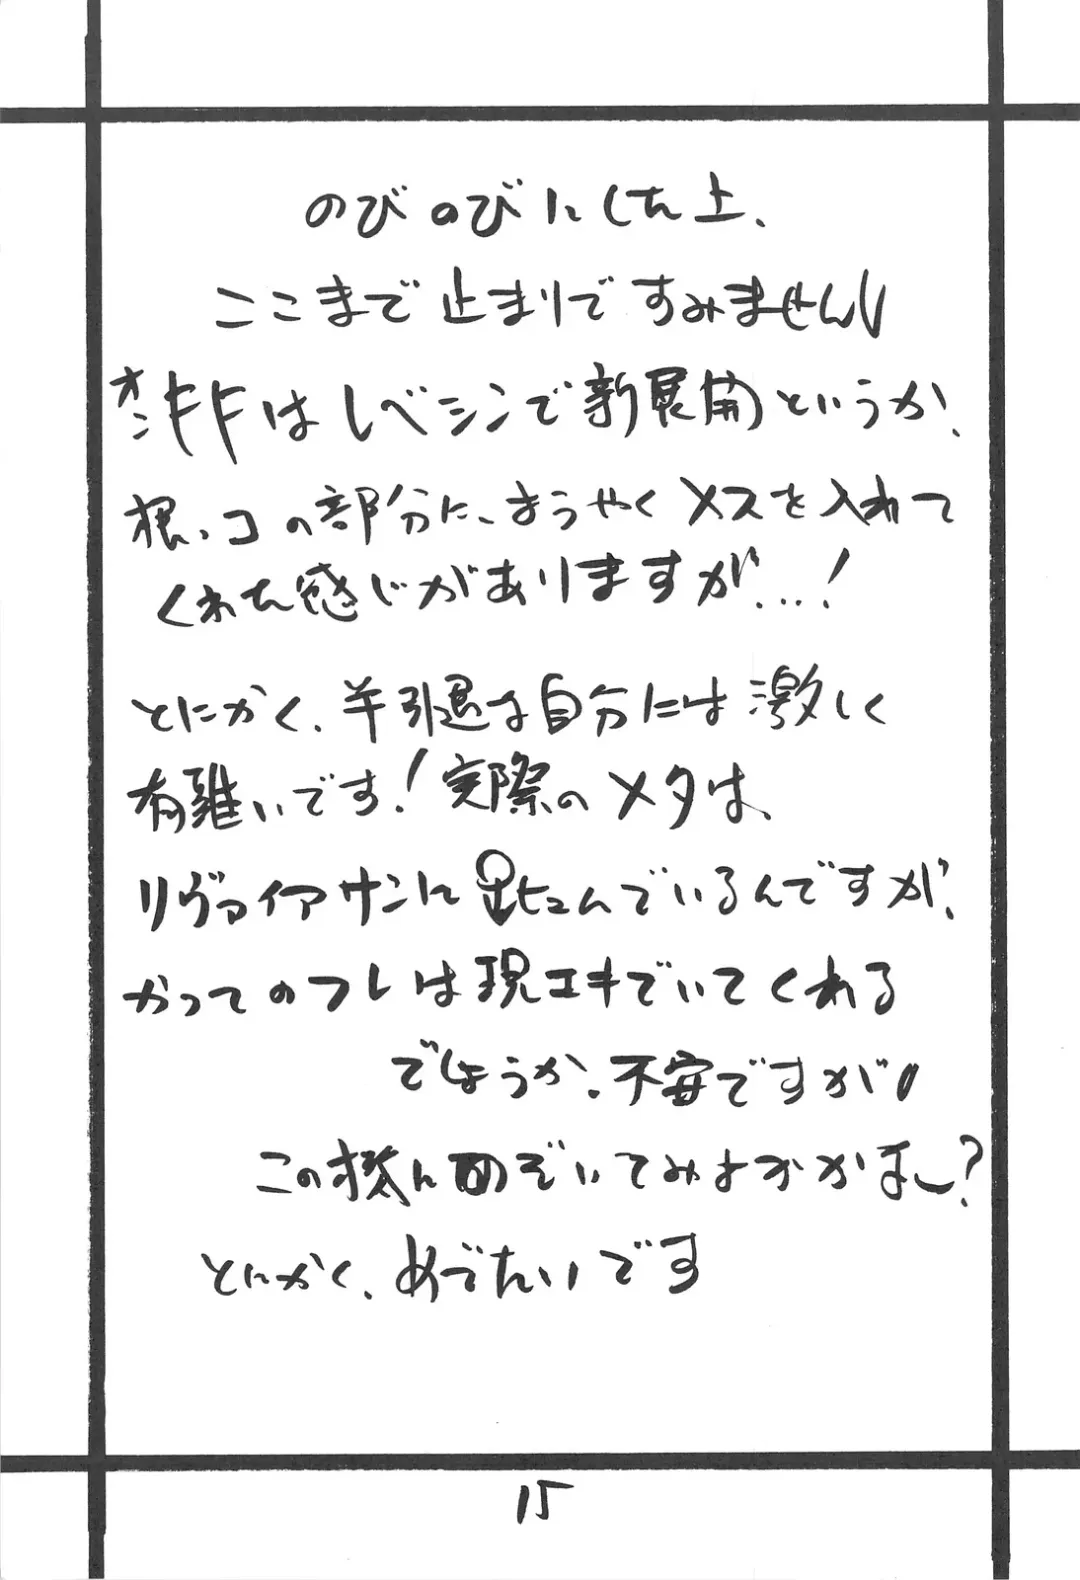 のびのびにした上、
ここまで止まりですみません
オンキキはレベシンで新展開というか、
根ッコの部分に、ようやくメスを入れて
くれた感じがありますが…!
とにかく、羊引退は自分には激しく
有難いです!実際のメタは、
リヴァイアサンに はんでいるんですが、
かつてのフレは現エキでいてくれる
でしょうか。不安ですが
この機にのぞいてみようかなー?
とにかく、めでたいです
15